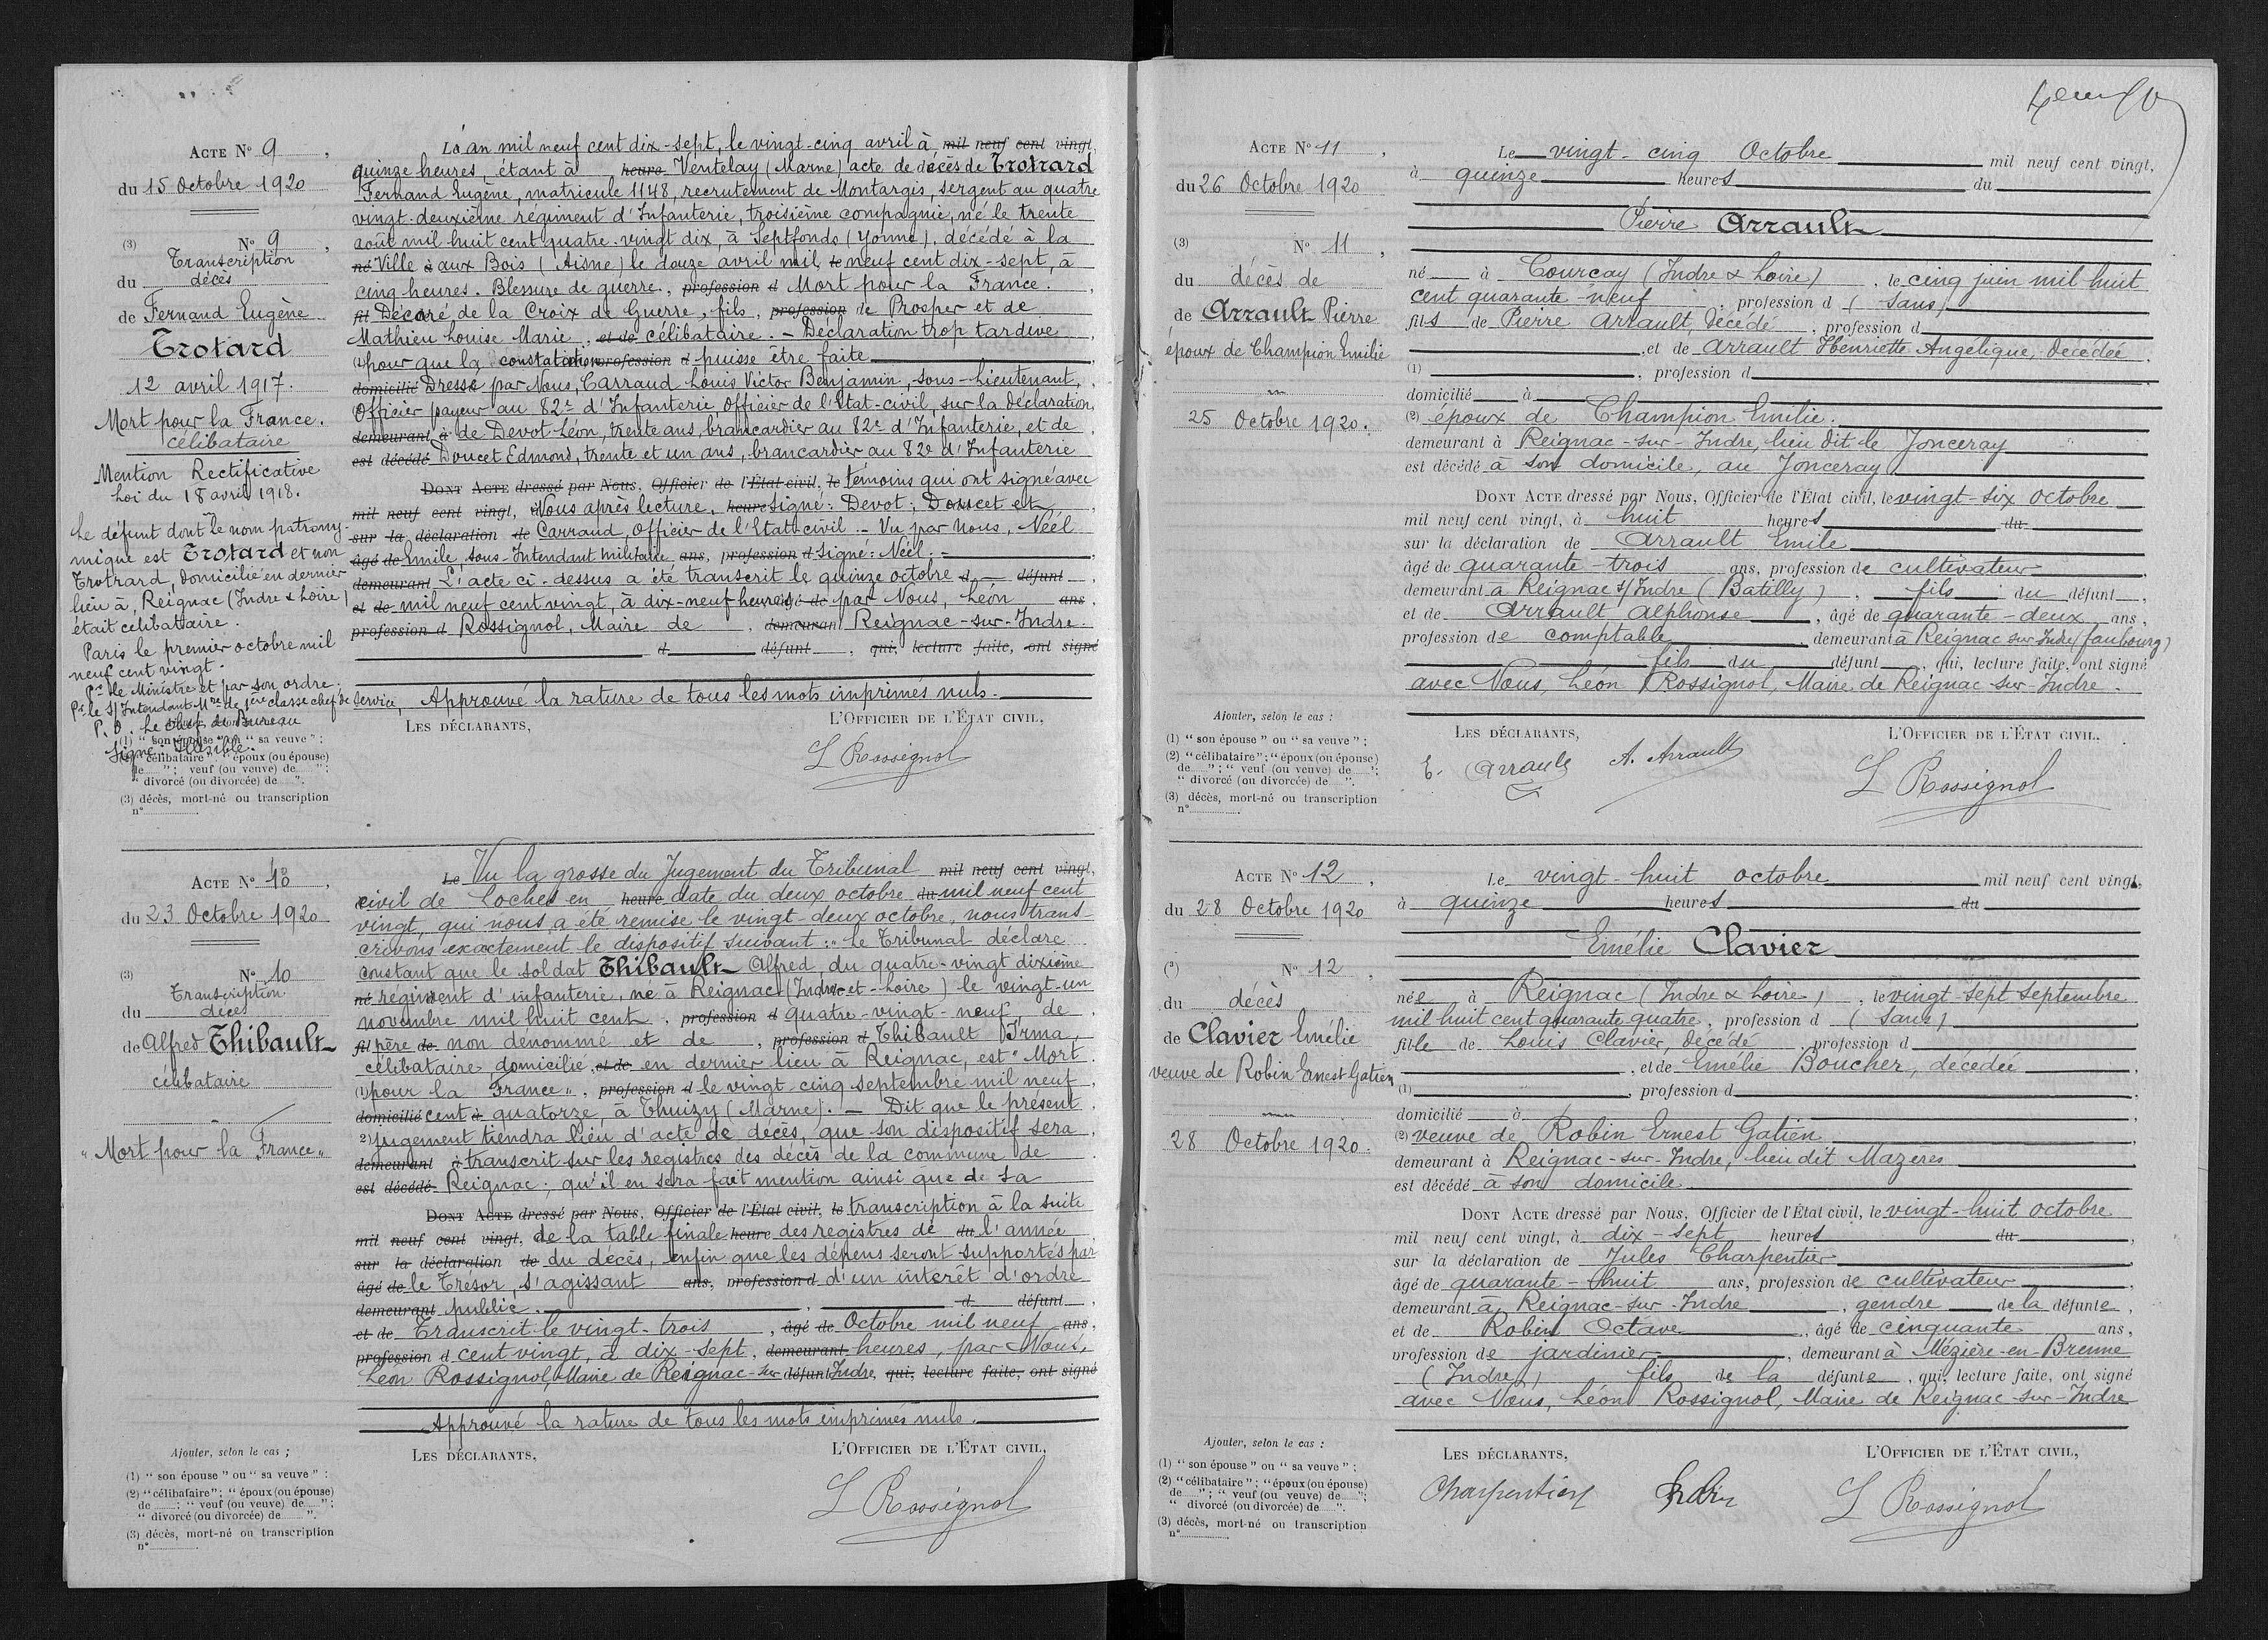 Acte No 9,
du 15 Octobre 1920
(3) No 9,
Transcription
du décès
de Fernand Eugène
Trotard
12 avril 1917.
Mort pour la France.
célibataire
Mention Rectificative
Loi du 18 avril 1918.
Le défunt dont le nom patrony-
mique est Trotard et non
Trotrard, domicilié en dernier
lieu à, Reignac (Indre & Loire)
était célibataire.
Paris le premier octobre mil
neuf cent vingt.
Pr le Ministre et par son ordre.
Pr le S/Intendant Mre de 1ère classe chef de Service,
P. O. Le chef de Bureau
(1) "son épouse" ou "sa veuve";
(2) "célibataire"; "époux (ou épouse)
de ......"; veuf (ou veuve) de ......";
"divorcé (ou divorcée) de ......".
(3) décès, mort-né ou transcription
n° ............
L'an mil neuf cent dix-sept, le vingt-cinq avril à mil neuf cent vingt,
quinze heures, étant à heure Ventelay (Marne) acte de décès de Trotrard
Fernand Eugène, matricule 1148, recrutement de Montargis, sergent au quatre
vingt-deuxième régiment d'Infanterie, troisième compagnie, né le trente
août mil huit cent quatre-vingt dix, à Septfonds (Yonne), décédé à la
né Ville à aux Bois (Aisne) le douze avril mil, le neuf cent dix-sept, à
cinq heures. Blessure de guerre, profession d Mort pour la France.
fil Décoré de la Croix de Guerre, fils, profession de Prosper et de
Mathieu Louise Marie, et de célibataire. - Déclaration trop tardive
(1) pour que la constatation profession d puisse être faite
domicilié Dressé par Nous, Carraud Louis Victor Benjamin, sous-Lieutenant,
Officier payeur au 82e d'Infanterie, Officier de l'Etat-civil, sur la déclaration
demeurant à de Devot Léon, trente ans, brancardier au 82e d'Infanterie, et de
est décédé Doucet Edmond, trente et un ans, brancardier au 82e d'Infanterie
Dont Acte dressé par Nous, Officier de l'État civil, le témoins qui ont signé avec
mil neuf cent vingt, à Nous après lecture, heure Signé: Devot; Doucet et
sur la déclaration de Carraud, Officier de l'Etat-civil. - Vu par nous, Néel
âgé de Emile, sous-Intendant militaire ans, profession d Signé: Néel. -
demeurant L'acte ci-dessus a été transcrit le quinze octobre d défunt
et de mil neuf cent vingt, à dix-neuf heures âgé de par Nous, Léon ans,
profession d Rossignol, Maire de , demeurant Reignac-sur-Indre.
d défunt, qui, lecture faite, ont signé
Approuvé la rature de tous les mots imprimés nuls.
Les déclarants,
L'Officier de l'État civil,
L Rossignol
Acte No 10,
du 23 Octobre 1920
(3) No 10
Transcription
du décès
de Alfred Thibault
célibataire
"Mort pour la France"
Ajouter, selon le cas:
(1) "son épouse" ou "sa veuve":
(2) "célibataire"; "époux (ou épouse)
de ......; "veuf (ou veuve) de ......";
"divorcé (ou divorcée) de ......".
(3) décès, mort-né ou transcription
n° ............
Le Vu la grosse du Jugement du Tribunal mil neuf cent vingt,
civil de Loches en heure date du deux octobre du mil neuf cent
vingt, qui nous a été remise le vingt-deux octobre, nous trans-
crivons exactement le dispositif suivant: "Le Tribunal déclare
constant que le soldat Thibault Alfred, du quatre-vingt dixième
né régiment d'infanterie, né à Reignac (Indre-et-Loire) le vingt-un
novembre mil huit cent, profession d quatre-vingt-neuf, de
fil père de non dénommé et de , profession d Thibault Irma,
célibataire, domicilié, et de en dernier lieu à Reignac, est "Mort
(1) pour la France", profession d le vingt cinq septembre mil neuf
domicilié cent à quatorze, à Thuizy (Marne). - Dit que le présent
(2) jugement tiendra lieu d'acte de décès, que son dispositif sera
demeurant à transcrit sur les registres des décès de la commune de
est décédé Reignac; qu'il en sera fait mention ainsi que de sa
Dont Acte dressé par Nous, Officier de l'État civil, le transcription à la suite
mil neuf cent vingt, de la table finale heure des registres de du l'année
sur la déclaration de du décès, enfin que les dépens seront supportés par
âgé de le Trésor, s'agissant ans, profession d d'un intérêt d'ordre
demeurant public. d défunt,
et de Transcrit le vingt-trois, âgé de Octobre mil neuf ans,
profession d cent vingt, à dix-sept, demeurant heures, par Nous,
Léon Rossignol, Maire de Reignac-sur défunt Indre, qui, lecture faite, ont signé
Approuvé la rature de tous les mots imprimés nuls.
Les déclarants,
L'Officier de l'État civil,
L Rossignol
Acte No 11,
du 26 Octobre 1920
(3) No 11,
du décès de
de Arrault Pierre
époux de Champion Emilie
25 Octobre 1920.
Ajouter, selon le cas:
(1) "son épouse" ou "sa veuve";
(2) "célibataire"; "époux (ou épouse)
de ......"; "veuf (ou veuve) de ......";
"divorcé (ou divorcée) de ......".
(3) décès, mort-né ou transcription
n° ............
Le vingt-cinq Octobre mil neuf cent vingt,
à quinze heures du
Pierre Arrault
né à Courçay (Indre & Loire), le cinq juin mil huit
cent quarante-neuf, profession d (Sans)
fils de Pierre Arrault, décédé, profession d
, et de Arrault Henriette Angélique, décédée.
(1) , profession d
domicilié à
(2) époux de Champion Emilie.
demeurant à Reignac-sur-Indre, lieu dit le Jonceray
est décédé à son domicile, au Jonceray
Dont Acte dressé par Nous, Officier de l'État civil, le vingt-six octobre
mil neuf cent vingt, à huit heures du
sur la déclaration de Arrault Emile
âgé de quarante-trois ans, profession de cultivateur,
demeurant à Reignac s/Indre (Batilly), fils du défunt,
et de Arrault Alphonse, âgé de quarante-deux ans,
profession de comptable, demeurant à Reignac sur Indre (faubourg)
fils du défunt, qui, lecture faite, ont signé
avec Nous, Léon Rossignol, Maire de Reignac-sur-Indre.
Les déclarants,
L'Officier de l'État civil,
E. Arrault A. Arrault
L Rossignol
Acte No 12,
du 28 Octobre 1920
(3) No 12,
du décès
de Clavier Emélie
veuve de Robin Ernest Gatien
28 Octobre 1920.
Ajouter, selon le cas:
(1) "son épouse" ou "sa veuve";
(2) "célibataire"; "époux (ou épouse)
de ......"; "veuf (ou veuve) de ......";
"divorcé (ou divorcée) de ......".
(3) décès, mort-né ou transcription
n° ............
Le vingt-huit octobre mil neuf cent vingt,
à quinze heures du
Emélie Clavier
née à Reignac (Indre & Loire), le vingt-sept septembre
mil huit cent quarante quatre, profession d (Sans)
fille de Louis Clavier, décédé, profession d
, et de Emélie Boucher, décédée,
(1) , profession d
domicilié à
(2) veuve de Robin Ernest Gatien
demeurant à Reignac-sur-Indre, lieu dit Mazères
est décédé à son domicile
Dont Acte dressé par Nous, Officier de l'État civil, le vingt-huit octobre
mil neuf cent vingt, à dix-sept heures du
sur la déclaration de Jules Charpentier
âgé de quarante-huit ans, profession de cultivateur,
demeurant à Reignac-sur-Indre, gendre de la défunte,
et de Robin Octave, âgé de cinquante ans,
profession de jardinier, demeurant à Mézière-en-Brenne
(Indre) fils de la défunte, qui, lecture faite, ont signé
avec Nous, Léon Rossignol, Maire de Reignac-sur-Indre
Les déclarants,
L'Officier de l'État civil,
Charpentier Robin
L Rossignol